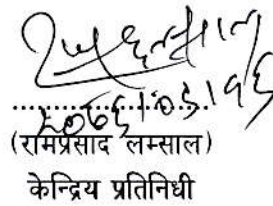 २०७६।०३।१६
(रामप्रसाद लम्साल)
केन्द्रिय प्रतिनिधी